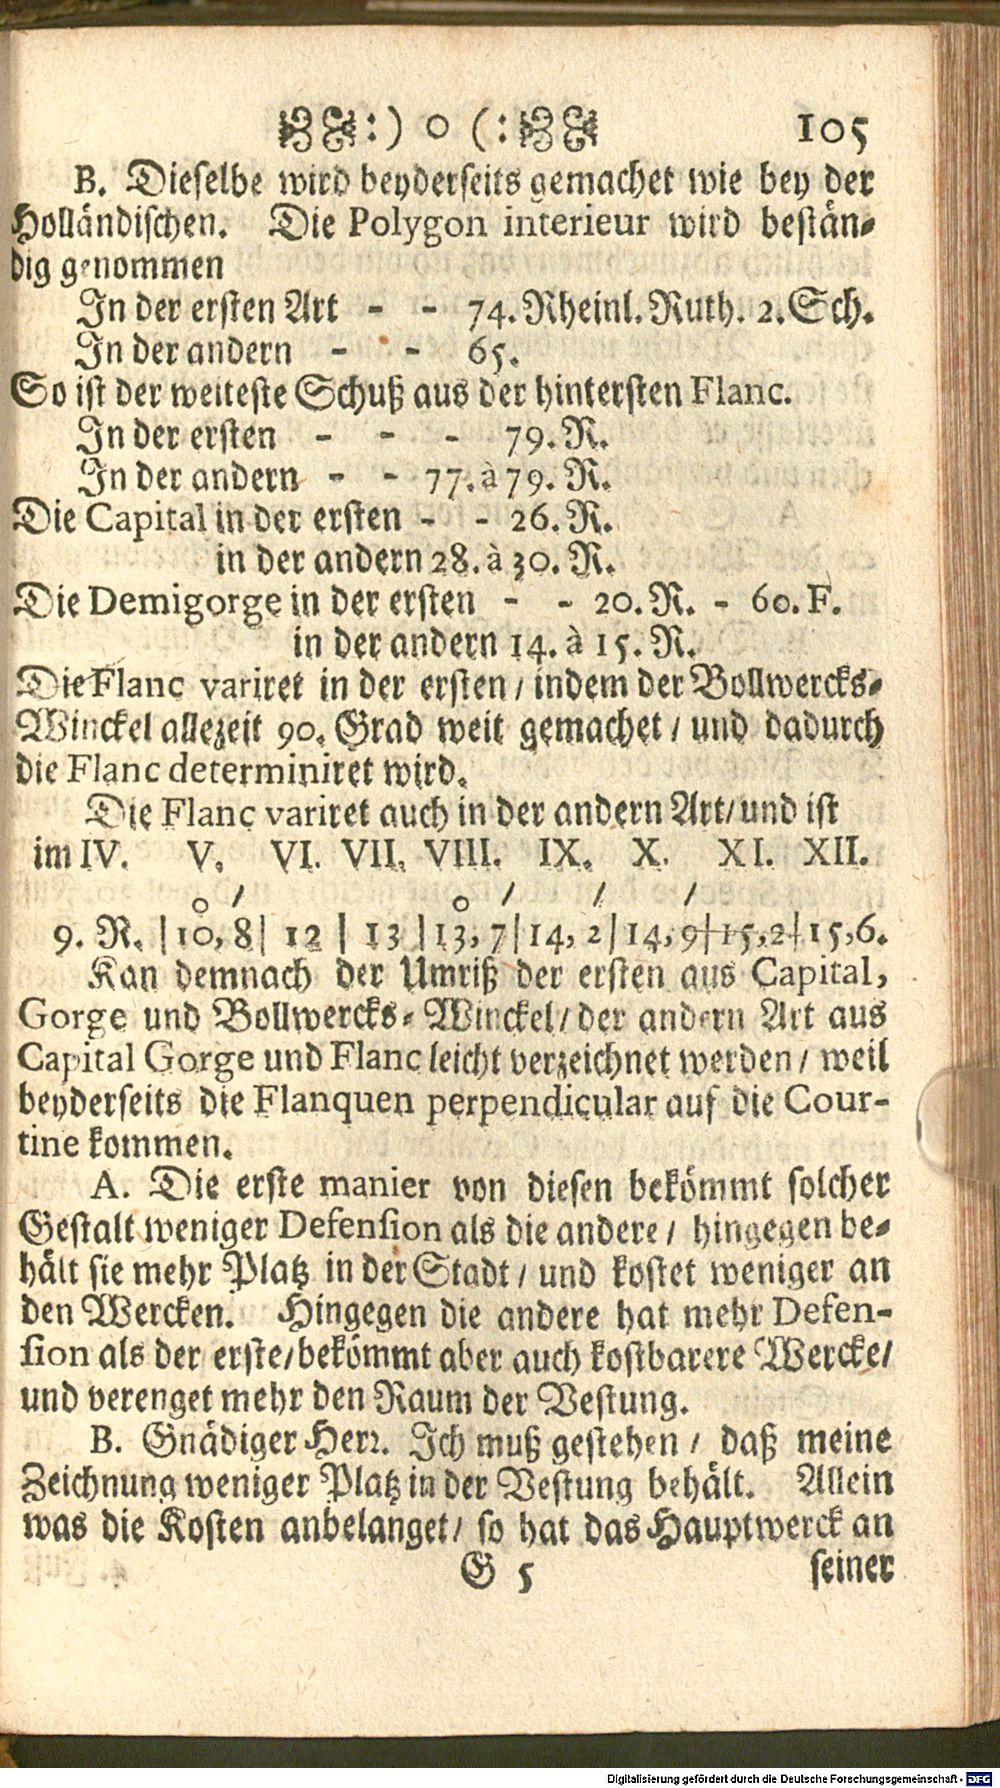 :) o (: 105
B. Dieselbe wird beyderseits gemachet wie bey der
Holländischen. Die Polygon interieur wird bestän-
dig genommen
In der ersten Art - - 74. Rheinl. Ruth. 2. Sch.
In der andern - - 65.
So ist der weiteste Schuß aus der hintersten Flanc.
In der ersten - - - 79. R.
In der andern - - 77. à 79. R.
Die Capital in der ersten - - 26. R.
in der andern 28. à 30. R.
Die Demigorge in der ersten - - 20. R. - 60. F.
in der andern 14. à 15. R.
Die Flanc variret in der ersten / indem der Bollwercks-
Winckel allezeit 90. Grad weit gemachet / und dadurch
die Flanc determiniret wird.
Die Flanc variret auch in der andern Art / und ist
im IV. V. VI. VII. VIII. IX. X. XI. XII.
o / o / / /
9. R. | 10, 8 | 12 | 13 | 13, 7 | 14, 2 | 14, 9 | 15, 2 | 15, 6.
Kan demnach der Umriß der ersten aus Capital,
Gorge und Bollwercks-Winckel / der andern Art aus
Capital Gorge und Flanc leicht verzeichnet werden / weil
beyderseits die Flanquen perpendicular auf die Cour-
tine kommen.
A. Die erste manier von diesen bekömmt solcher
Gestalt weniger Defension als die andere / hingegen be-
hält sie mehr Platz in der Stadt / und kostet weniger an
den Wercken. Hingegen die andere hat mehr Defen-
sion als der erste / bekömmt aber auch kostbarere Wercke /
und verenget mehr den Raum der Vestung.
B. Gnädiger Herr. Ich muß gestehen / daß meine
Zeichnung weniger Platz in der Vestung behält. Allein
was die Kosten anbelanget / so hat das Hauptwerck an
G 5 seiner
Digitalisierung gefördert durch die Deutsche Forschungsgemeinschaft - DFG